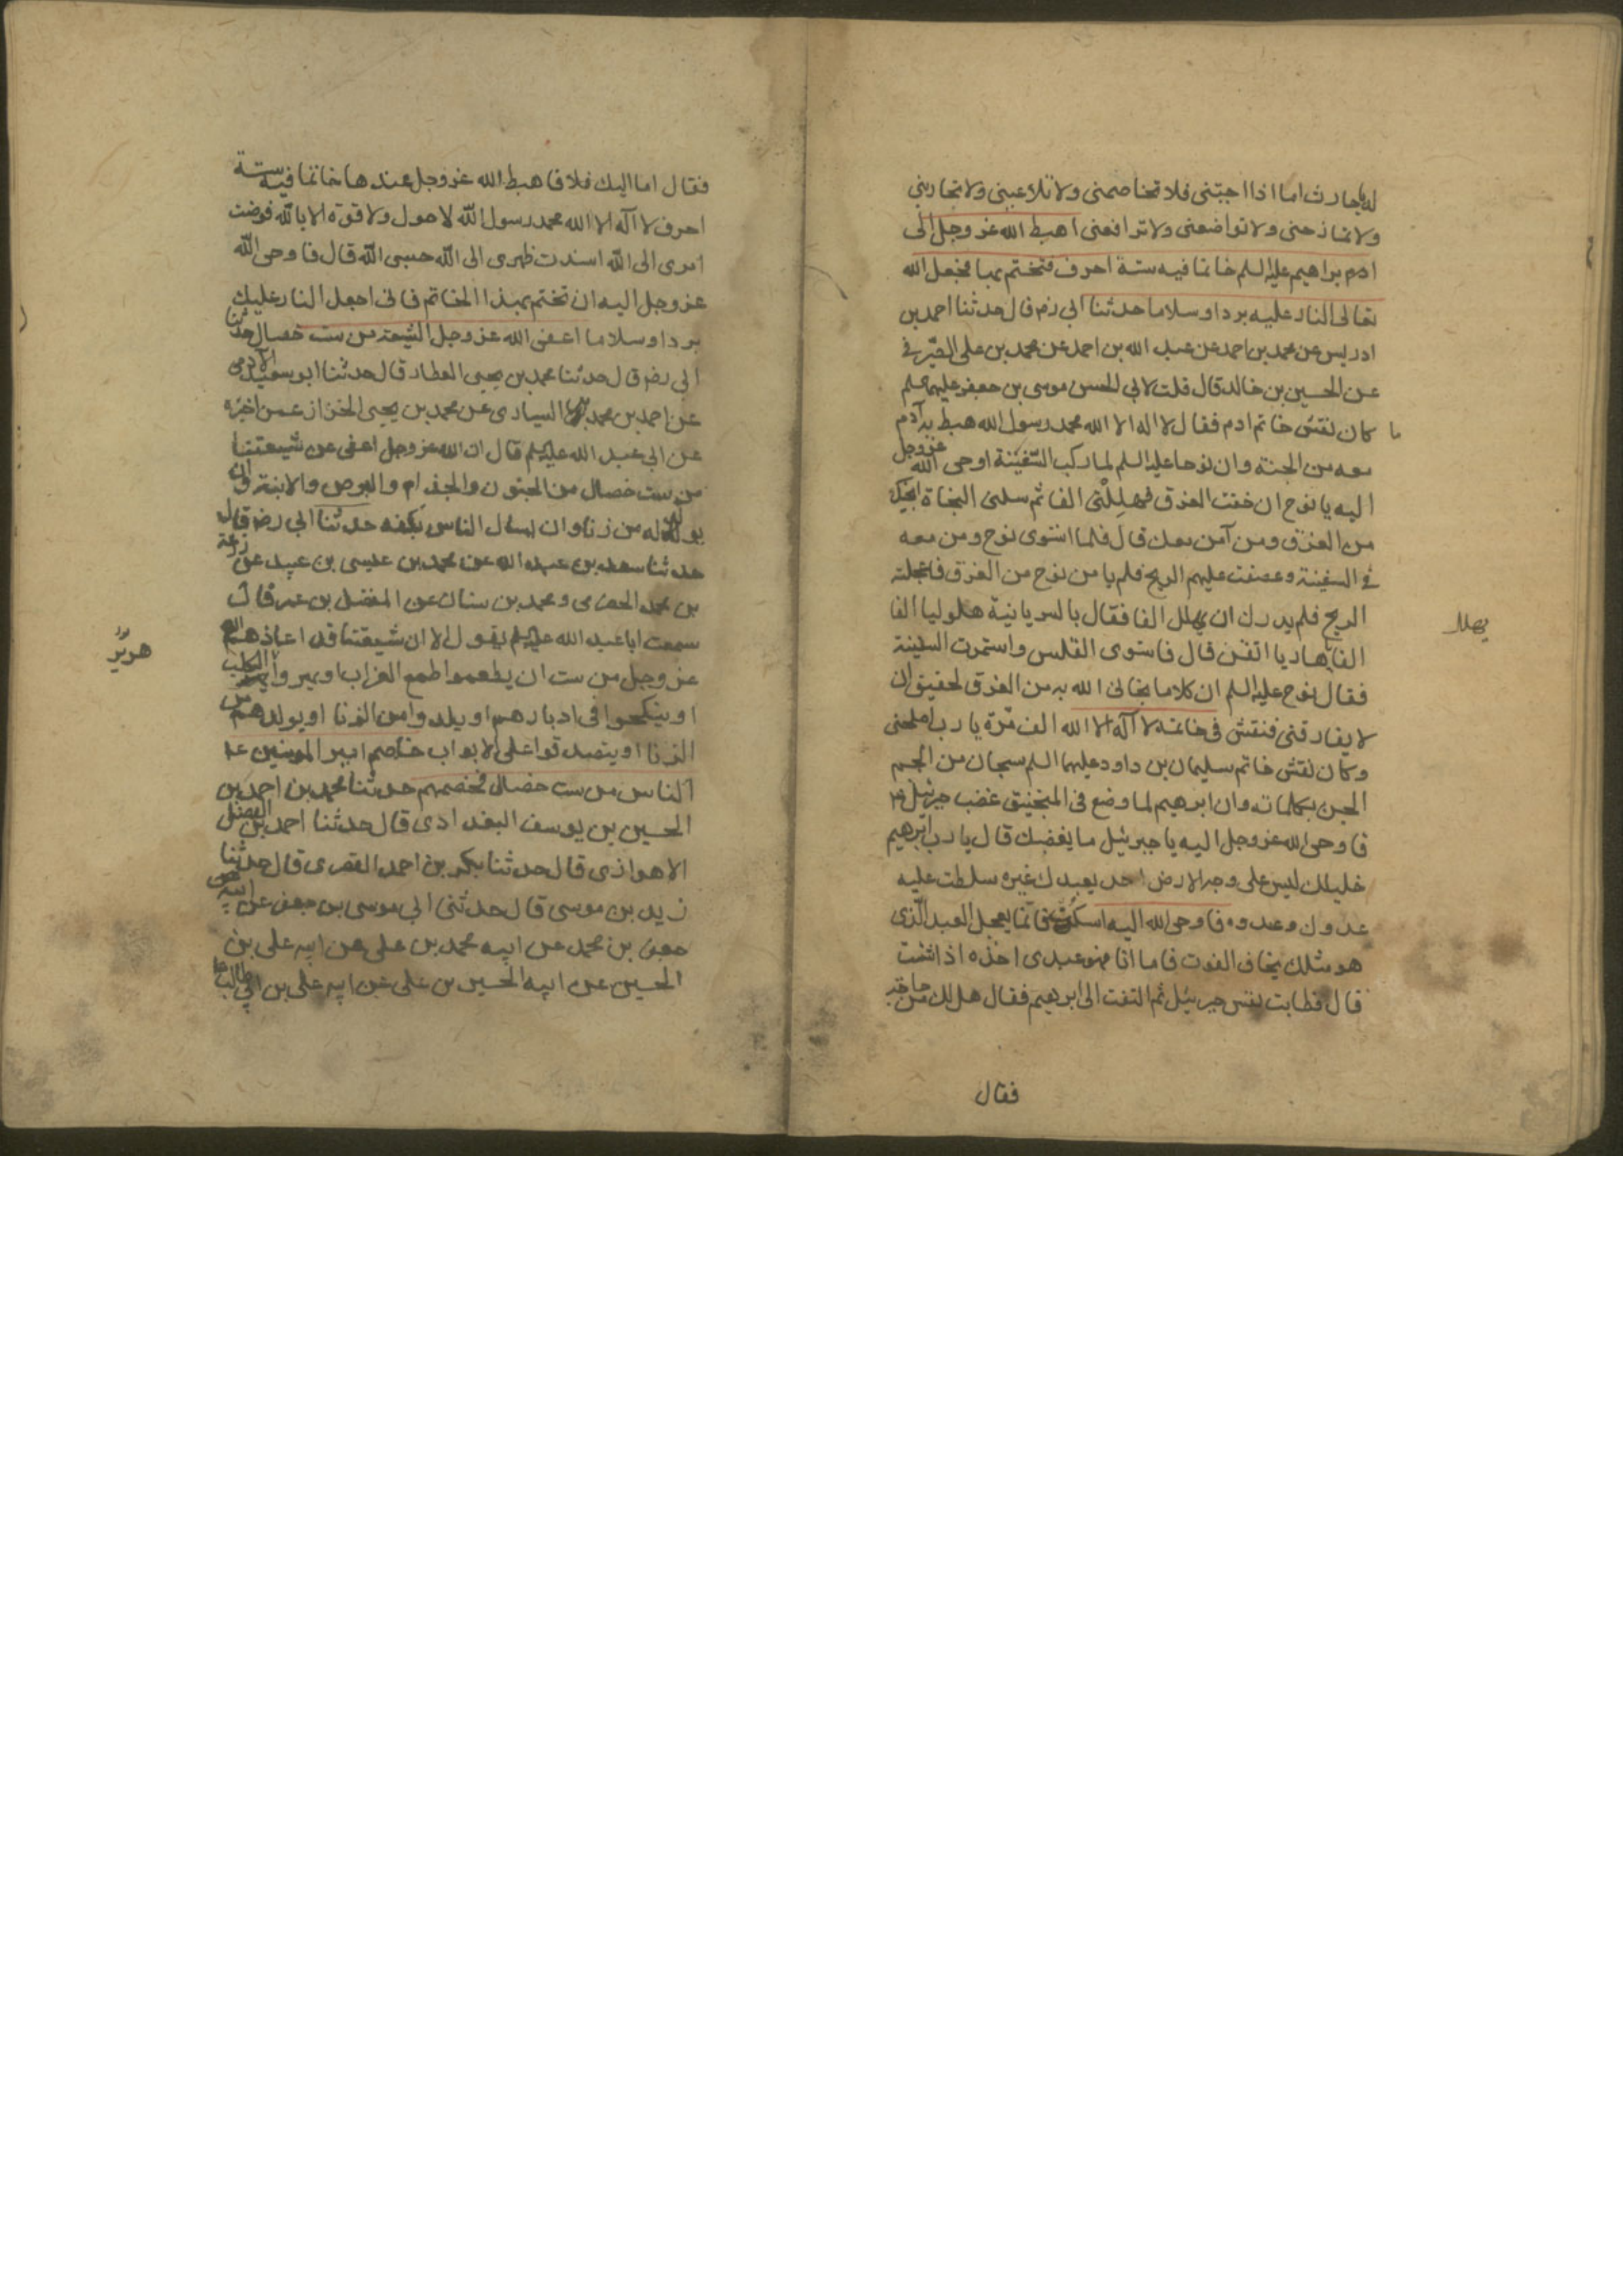 له يا حارث اما اذا اجبتنى فلا تخاصمنى ولا تلاعبنى ولا تجارينى
ولا تمازحنى ولا تواضعنى ولا ترافعنى اهبط الله عز وجل الى
ابراهيم عليه السلم خاتما فيه ستة احرف فتختم بها فجعل الله
تعالى النار عليه بردا وسلاما حدثنا ابى رض قال حدثنا احمد بن
ادريس عن محمد بن احمد عن عبد الله بن احمد عن محمد بن على الصيرفى
عن الحسين بن خالد قال قلت لابى الحسن موسى بن جعفر عليهما سلم
ما كان نقش خاتم ادم فقال لا اله الا الله محمد رسول الله هبط به آدم
معه من الجنة وان نوحا عليه السلم لما ركب السفينة اوحى الله عز وجل
اليه يا نوح ان خفت الغرق فهللنى الفا ثم سلنى النجاة انجيك
من الغرق ومن آمن معك قال فلما استوى نوح ومن معه
فى السفينة وعصفت عليهم الريح فلم يامن نوح من الغرق فاعجلته
الريح فلم يدرك ان يهلل الفا فقال بالسريانية هلوليا الفا
يهلل
الفا يا ماريا اتقن قال فاستوى القلس واستمرت السفينة
فقال نوح عليه السلم ان كلاما نجانى الله به من الغرق لحقيق ان
لا يفارقنى فنقش فى خاتمه لا اله الا الله الف مرة يا رب اصلحنى
وكان نقش خاتم سليمان بن داود عليهما السلم سبحان من الجم
الجن بكلماته وان ابرهيم لما وضع فى المنجنيق غضب جبرئيل ع
فاوحى الله عز وجل اليه يا جبرئيل ما يغضبك قال يا رب ابرهيم
خليلك ليس على وجه الارض احد يعبدك غيره سلطت عليه
عدوك وعدوه فاوحى الله اليه اسكت فانما يعجل العبد الذى
هو مثلك يخاف الفوت فاما انا فهو عبدى اخذه اذا شئت
قال فطابت نفس جبرئيل ثم التفت الى ابرهيم فقال هل لك من حاجة
فقال
فقال اما اليك فلا فاهبط الله عز وجل عندها خاتما فيه ستة
احرف لا اله الا الله محمد رسول الله لا حول ولا قوة الا بالله فوضت
امرى الى الله اسندت ظهرى الى الله حسبى الله قال فاوحى الله
عز وجل اليه ان تختم بهذا الخاتم فانى اجعل النار عليك
بردا وسلاما اعفى الله عز وجل الشيعة من ست خصال حدثنا
ابى رض قال حدثنا محمد بن يحيى العطار قال حدثنا ابو سعيد الآدمى
عن احمد بن محمد السيارى عن محمد بن يحيى الخزاز عمن اخبره
عن ابى عبد الله عليه السلم قال ان الله عز وجل اعفى عن شيعتنا
من ست خصال من الجنون والجذام والبرص والابنة وان
يولد له من زنا وان يسئال الناس بكفه حدثنا ابى رض قال
حدثنا سعد بن عبد الله عن محمد بن عيسى بن عبيد عن زرعة
بن محمد الحضرمى ومحمد بن سنان عن المفضل بن عمر قال
سمعت ابا عبد الله عليه السلم يقول الا ان شيعتنا قد اعاذهم الله
هرير
عز وجل من ست ان يطمعوا طمع الغراب او يهروا هرير الكلب
او ينكحوا فى ادبارهم او يلدوا من الزنا او يولد لهم من
الزنا او يتصدقوا على الابواب خاصم امير المومنين ع
الناس من ست خصال فخصمهم حدثنا محمد بن احمد بن
الحسين بن يوسف البغدادى قال حدثنا احمد بن الفضل
الاهوازى قال حدثنا بكر بن احمد القصرى قال حدثنا
زيد بن موسى قال حدثنى ابى موسى بن جعفر عن ابيه
جعفر بن محمد عن ابيه محمد بن على عن ابيه على بن
الحسين عن ابيه الحسين بن على عن ابيه على بن ابى طالب ع